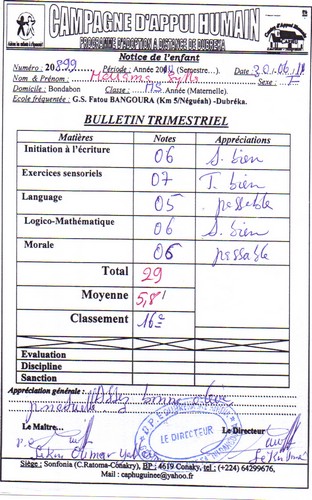 CAMPAGNE D'APPUI HUMAIN
PROGRAMME D'ADOPTION A DISTANCE DE DUBREKA
Notice de l'enfant
Numéro : 20899 Période : Année (Semestre…). Date :
Nom & Prénoms : Sexe : F
Domicile : Bondabon Classe : MS Année (Maternelle).
Ecole fréquentée : G.S. Fatou BANGOURA (Km 5/Néguéah) -Dubréka.
BULLETIN TRIMESTRIEL
Matières Notes Appréciations
Initiation à l'écriture 06 A. bien
Exercices sensoriels 07 T. bien
Language 05 passable
Logico-Mathématique 06 A. bien
Morale 05 passable
Total 29
Moyenne 5,8
Classement 16e
Evaluation
Discipline
Sanction
Appréciation générale : Assez bonne élève
Le Maître… Le Directeur
LE DIRECTEUR
Siège : Sonfonia (C.Ratoma-Conakry), BP : 4619 Conaky, tel : (+224) 64299676,
Email : caphuguinee@yahoo.fr